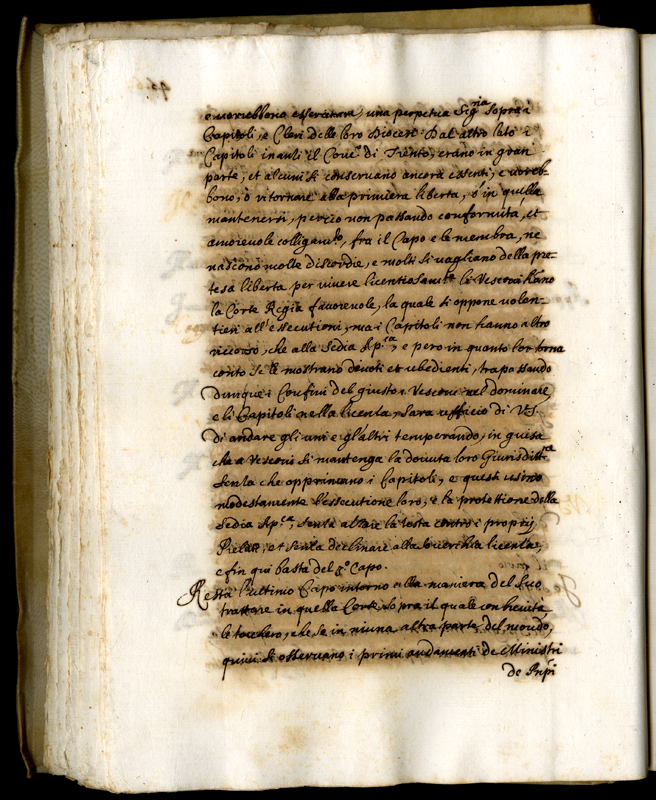 e vorrebbono essercitare, una perpetua Sig.ria sopra i
Capitoli, e Cleri delle loro Diocesi. Dal altro lato i
Capitoli inanti il Conc.o di Trento, erano in gran
parte, et alcuni si conservano ancora essenti, e voreb-
bono, ò ritornare alla primiera libertà, ò in quella
mantenersi, perciò non passando conformità, et
amorevole colligam.to, fra il Capo e le membra, ne
nascono molte discordie, e molti si vagliano della pre-
tesa libertà per vivere licentiosam.te li Vescovi hano
la Corte Regia favorevole, la quale si oppone volen-
tieri all'essecutioni, ma i Capitoli non hanno altro
ricorso, che alla Sedia Ap.ca, e però in quanto lor torna
conto se le mostrano devoti et ubedienti, trapassando
dunque i Confini del giusto i Vescovi nel dominare,
e li Capitoli nella licenza, sara ufficio di V.S.
di andare gli uni e gl'altri temperando, in guisa
che a Vescovi si mantenga la dovuta loro Giurisditt.e
senza che opprimano i Capitoli, e questi usino
modestamente l'essecutione loro, e la protettione della
Sedia Ap.ca, senza alzare la testa contro i proprij
Prelati, et senza declinare alla soverchia licenza,
e fin qui basta del 3.o Capo.
Resta l'ultimo Capo intorno alla maniera del suo
trattare in quella Corte, sopra il quale con brevità
le toccherò, che se in niuna altra parte del mondo,
quivi si osservano i primi andamenti de Ministri
de Prnpi